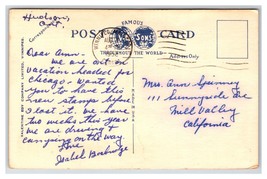 Hudson,
Ont.
FAMOUS
POST CARD
SONS
THROUGHOUT THE WORLD
Correspondence
Address Only
Dear Ann -
We are out on
vacation headed for
Chicago. Want
you to have this
new stamps before
I lost it. We have
two weeks this year
We are driving &
camping on the way.
Love
Isabel
Mrs. Ann Spinney
111 Sunnyside Ave
Mill Valley
California
VALENTINE
COMPANY LIMITED, WINNIPEG